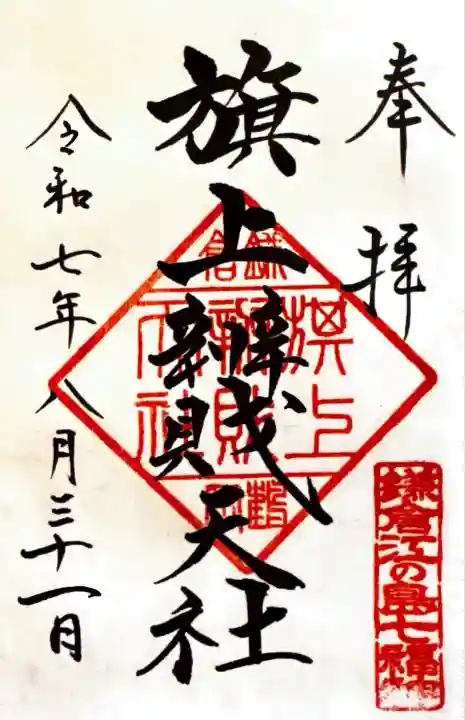 奉拝
旗上辨財天社
令和七年八月三十一日
鎌倉
旗上
辨財
天社
鶴岡
鎌倉江の島七福神